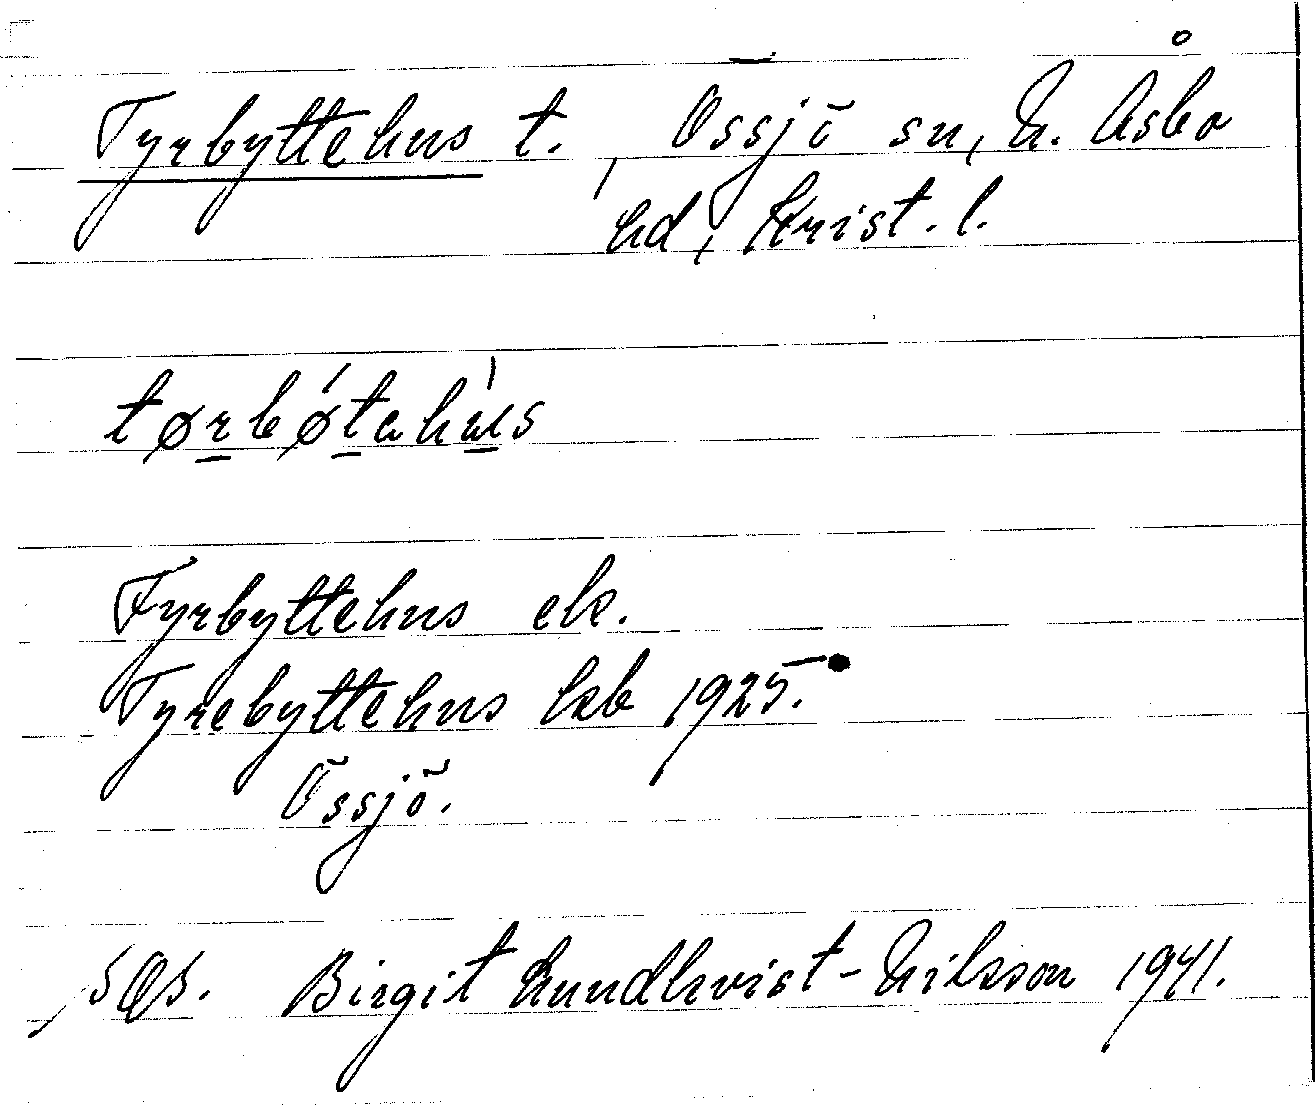 Tyrbyttehus t., Össjö sn, N. Åsbo
hd, Krist. l.
tørbǿtahús
Fyrbyttehus ek.
Tyrebyttehus kb 1925.
Össjö.
SOS. Birgit Lundkvist-Nilsson 1941.